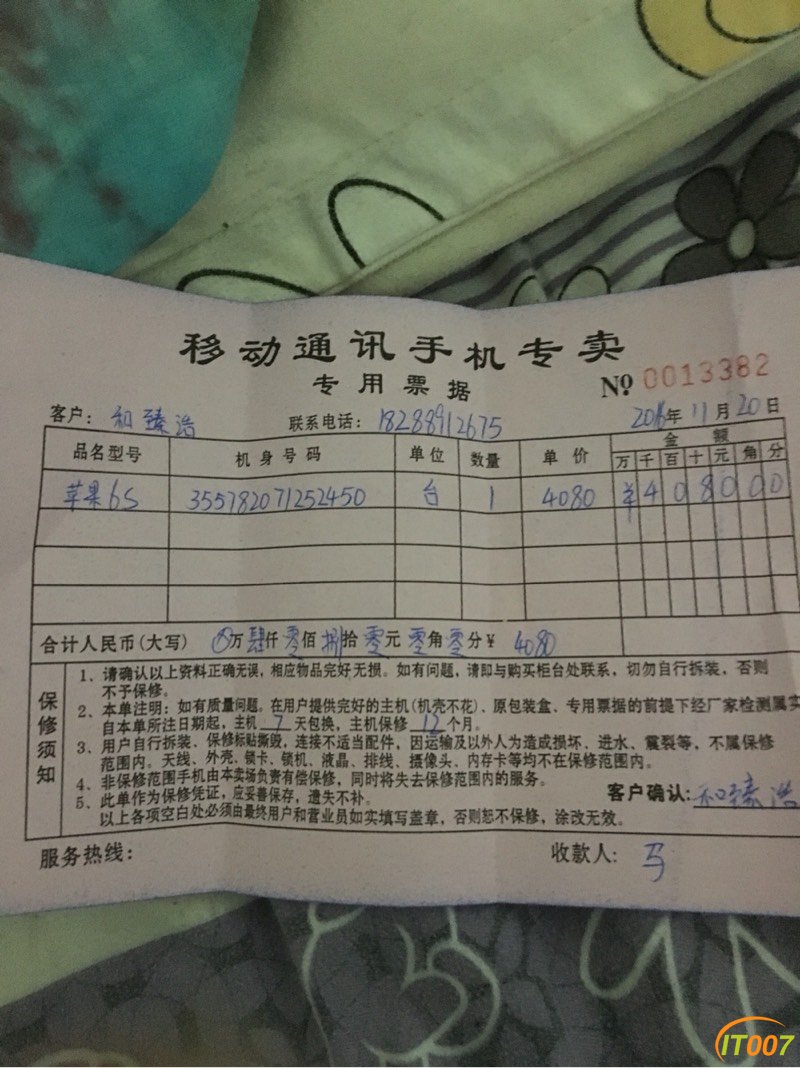 移动通讯手机专卖
专用票据
№ 0013382
客户: 和臻浩 联系电话: 18288912675 2016年11月20日
品名型号 机身号码 单位 数量 单价 金额
万 千 百 十 元 角 分
苹果6S 355782071252450 台 1 4080 ¥ 4 0 8 0 0 0
合计人民币(大写) 万肆仟零佰捌拾零元零角零分¥ 4080
保修须知
1、请确认以上资料正确无误，相应物品完好无损。如有问题，请即与购买柜台处联系，切勿自行拆装，否则
不予保修。
2、本单注明：如有质量问题。在用户提供完好的主机(机壳不花)、原包装盒、专用票据的前提下经厂家检测属实
自本单所注日期起，主机 7 天包换，主机保修 12 个月。
3、用户自行拆装、保修标贴撕毁，连接不适当配件，因运输及以外人为造成损坏、进水、震裂等，不属保修
范围内。天线、外壳、锁卡、锁机、液晶、排线、摄像头、内存卡等均不在保修范围内。
4、非保修范围手机由本卖场负责有偿保修，同时将失去保修范围内的服务。
5、此单作为保修凭证，应妥善保存，遗失不补。
以上各项空白处必须由最终用户和营业员如实填写盖章，否则恕不保修，涂改无效。
客户确认: 和臻浩
服务热线: 收款人: 马
IT007